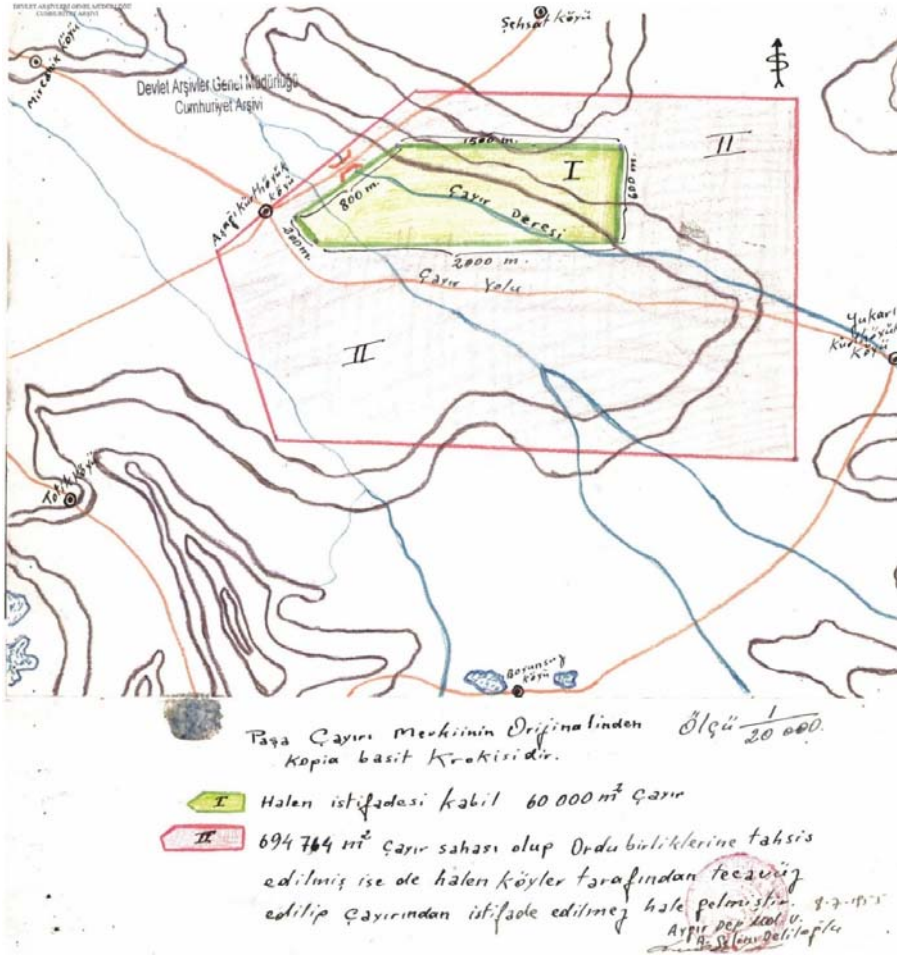 DEVLET ARŞİVLERİ GENEL MÜDÜRLÜĞÜ
CUMHURİYET ARŞİVİ
Şehsat Köyü
Miređik Köyü
Devlet Arşivler Genel Müdürlüğü
Cumhuriyet Arşivi
1500 m.
I
II
600 m.
Aşağı Kürthöyük
köyü
800 m.
Çayır Deresi
300 m.
2000 m.
Çayır Yolu
II
Yukarı
Kürthöyük
Köyü
Köyü
Boransuz
Köyü
Paşa Çayırı Mevkiinin Orijinalinden
Kopia basit Krokisidir.
Ölçü 1/20 000.
I Halen istifadesi kabil 60 000 m² Çayır
II 694 764 m² Çayır sahası olup Ordu birliklerine tahsis
edilmiş ise de halen köyler tarafından tecavüz
edilip Çayırından istifade edilmez hale gelmiştir.
Aygır Dep
A. Selim Deliloğlu